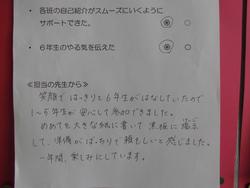 ・ 各班の自己紹介がスムーズにいくように
サポートできた。 ◎ ○
・ 6年生のやる気を伝えた ◎ ○
≪担当の先生から≫
笑顔ではっきりと6年生がはなしていたので
1~5年生が安心して参加できました。
めあても大きな紙に書いて黒板に掲示
して、準備がばっちりで頼もしいと感じました。
一年間、楽しみにしています。